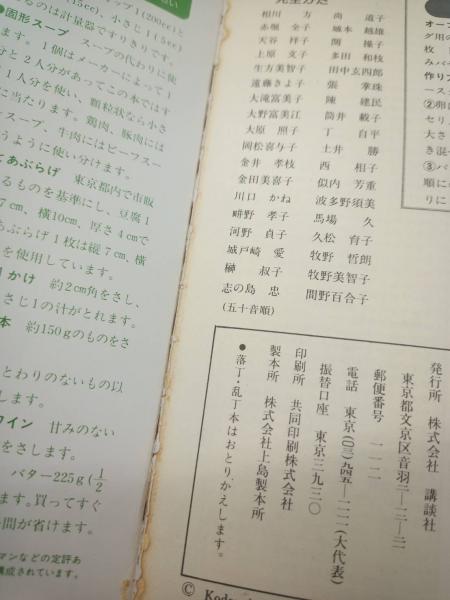 ップ1(200cc)と
(15cc)、小さじ1(5cc)
るのは計量器ですりきりです。
●固形スープ スープの代わりに使
ます。1個はメーカーによって1
分と2人分があってこの本ではす
1人分を使い、顆粒状なら小さ
に当たります。鶏肉、豚肉には
スープ、牛肉にはビーフスー
うように使い分けます。
あぶらげ 東京都内で市販
るものを基準にし、豆腐1
7cm、横10cm、厚さ4cmで
あぶらげ1枚は縦7cm、横
を使用しています。
かけ 約2cm角をさし、
さじ1の汁がとれます。
本 約150gのものをさ
とわりのないもの以
します。
ワイン 甘みのない
をさします。
バター225g(1/2
ます。買ってすぐ
間が省けます。
マンなどの定評あ
構成されています。
先生がた
相川 方
赤堀 全子
天谷 祥子
上原 文子
生方美智子
遠藤きよ子
大滝富美子
大野富美江
大原 照子
岡松喜与子
金井 孝枝
金田美喜子
川口 かね
畊野 孝子
河野 貞子
城戸崎 愛
榊 叔子
志の島 忠
(五十音順)
尚 道子
城本 越雄
関 操子
多田 和枝
田中玄四郎
張 掌珠
陳 建民
筒井 載子
丁 自平
土井 勝
西 相子
似内 芳重
波多野須美
馬場 久
久松 育子
牧野 哲朗
牧野美智子
間野百合子
発行所 株式会社 講談社
東京都文京区音羽二—一二—二一
郵便番号 一一二
電話 東京(〇三)九四五—一一一一(大代表)
振替口座 東京三九三〇
印刷所 共同印刷株式会社
製本所 株式会社上島製本所
●落丁・乱丁本はおとりかえします。
© Kod
オーブ
グ用の
枚
みバ
作りフ
ースス
②卵に
セリ
大さ
き混
③バ
順に
りに